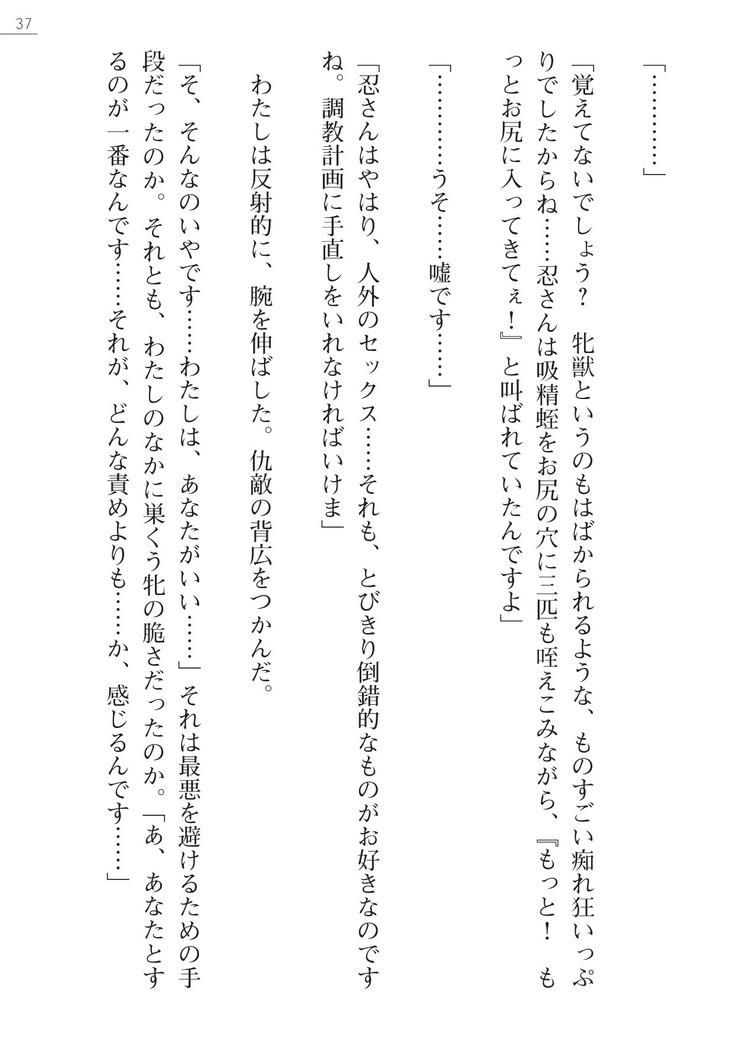 37
「…………」
「覚えてないでしょう?　牝獣というのもはばかられるような、ものすごい痴れ狂いっぷ
りでしたからね……忍さんは吸精蛭をお尻の穴に三匹も咥えこみながら、『もっと!　も
っとお尻に入ってきてぇ!』と叫ばれていたんですよ」
「…………うそ……嘘です……」
「忍さんはやはり、人外のセックス……それも、とびきり倒錯的なものがお好きなのです
ね。調教計画に手直しをいれなければいけま」
　わたしは反射的に、腕を伸ばした。仇敵の背広をつかんだ。
「そ、そんなのいやです……わたしは、あなたがいい……」それは最悪を避けるための手
段だったのか。それとも、わたしのなかに巣くう牝の脆さだったのか。「あ、あなたとす
るのが一番なんです……それが、どんな責めよりも……か、感じるんです……」